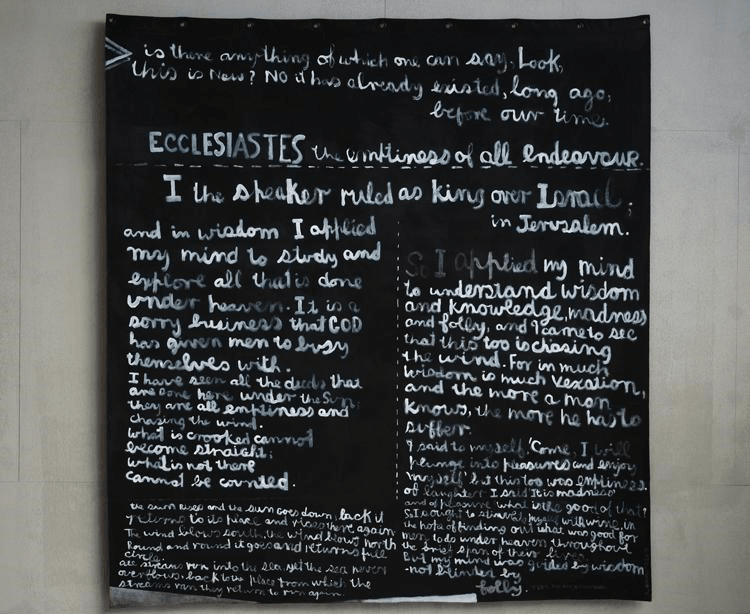 is there anything of which one can say, Look,
this is New? NO it has already existed, long ago,
before our time.
ECCLESIASTES the emptiness of all endeavour.
I the speaker ruled as king over Israel;
in Jerusalem.
and in wisdom I applied
my mind to study and
explore all that is done
under heaven. It is a
sorry business that GOD
has given men to busy
themselves with.
I have seen all the deeds that
are done here under the Sun;
they are all emptiness and
chasing the wind.
what is crooked cannot
become straight;
what is not there
cannot be counted.
the sun rises and the sun goes down, back it
returns to its place and rises there again
The wind blows south, the wind blows north
Round and round it goes and returns full
circle.
all streams run into the sea, yet the sea never
overflows, back to the place from which the
streams ran they return to run again.
So I applied my mind
to understand wisdom
and knowledge, madness
and folly, and I came to see
that this too is chasing
the wind. For in much
wisdom is much vexation,
and the more a man
knows, the more he has to
suffer.
I said to myself, 'Come, I will
plunge into pleasures and enjoy
myself' but this too was emptiness.
of laughter I said It is madness'
and of pleasure what is the good of that?
So I sought to stimulate myself with wine, in
the hope of finding out what was good for
men to do under heaven throughout
the brief span of their lives.
But my mind was guided by wisdom
-not blinded by
folly.